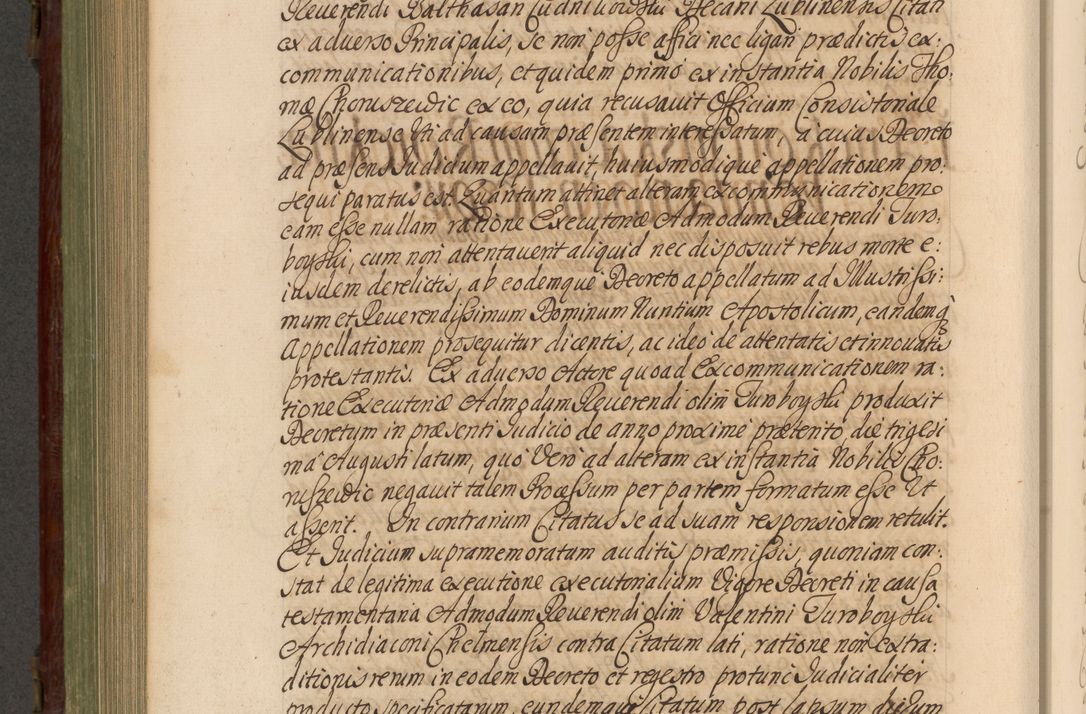 Reuerendi Balthasari Cudniuoisku Decani Lublinensis Citati
ex aduerso Principalis, se non posse affici nec ligari prædictis ex:
communicationibus, et quidem primo ex instantia Nobilis Tho:
mæ Choruszeidic ex eo, quia recusauit Officium Consistoriale
Lublinense Uti ad causam præsentem interessatum, à cuius Decreto
ad præsens Iudicium appellauit, huiusmodique appellationem pro:
sequi paratus est. Quantum attinet alteram excommunicationem
eam esse nullam ratione Executoriæ Admodum Reuerendi Turo:
boyski, cum non attentauerit aliquid nec disposuit rebus morte e:
iusdem derelictis, ab eodemque Decreto appellatum ad Illustrissi:
mum et Reuerendissimum Dominum Nuntium Apostolicum, eandemq3
Appellationem prosequitur dicentis, ac ideo de attentatis et innouatis
protestantis. Ex aduerso Actore quoad Excommunicationem ra:
tione Executoriæ Admodum Reuerendi olim Turoboyski produxit
Decretum in præsenti Iudicio de anno proxime præterito, die trigesi
ma Augusti latum, quo Vero ad alteram ex instantia Nobilis Cho:
ruszeidic negauit talem Processum per partem formatum esse Ut
asserit. In contrarium Citatus se ad suam responsionem retulit.
Et Iudicium supramemoratum auditis præmissis, quoniam con:
stat de legitima executione executorialium Vigore Decreti in causa
testamentaria Admodum Reuerendi olim Valentini Turoboyski
Archidiaconi Chelmensis contra Citatum lati, ratione non extra:
ditionis rerum in eodem Decreto et regestro protunc Iudicialiter
producto specificatarum, eundemque Citatum post lapsum dierum